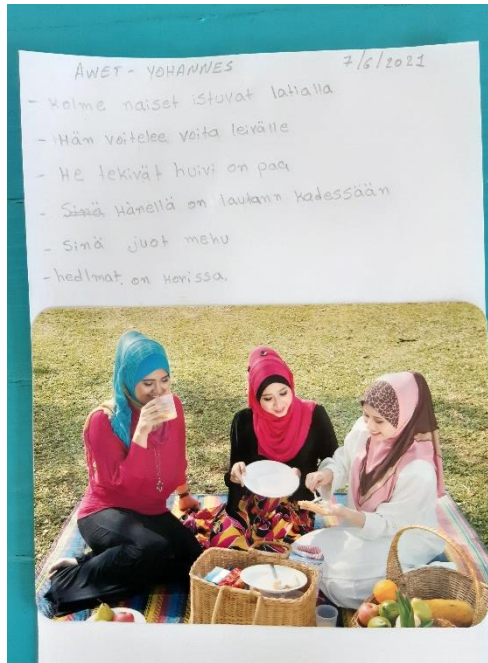 AWET - YOHANNES 7/6/2021
- Kolme naiset istuvat latialla
- Hän voitelee voita leivälle
- He tekivät huivi on paa
- Sinä Hänellä on lautann kadessään
- Sinä juot mehu
- hedlmat. on Korissa.